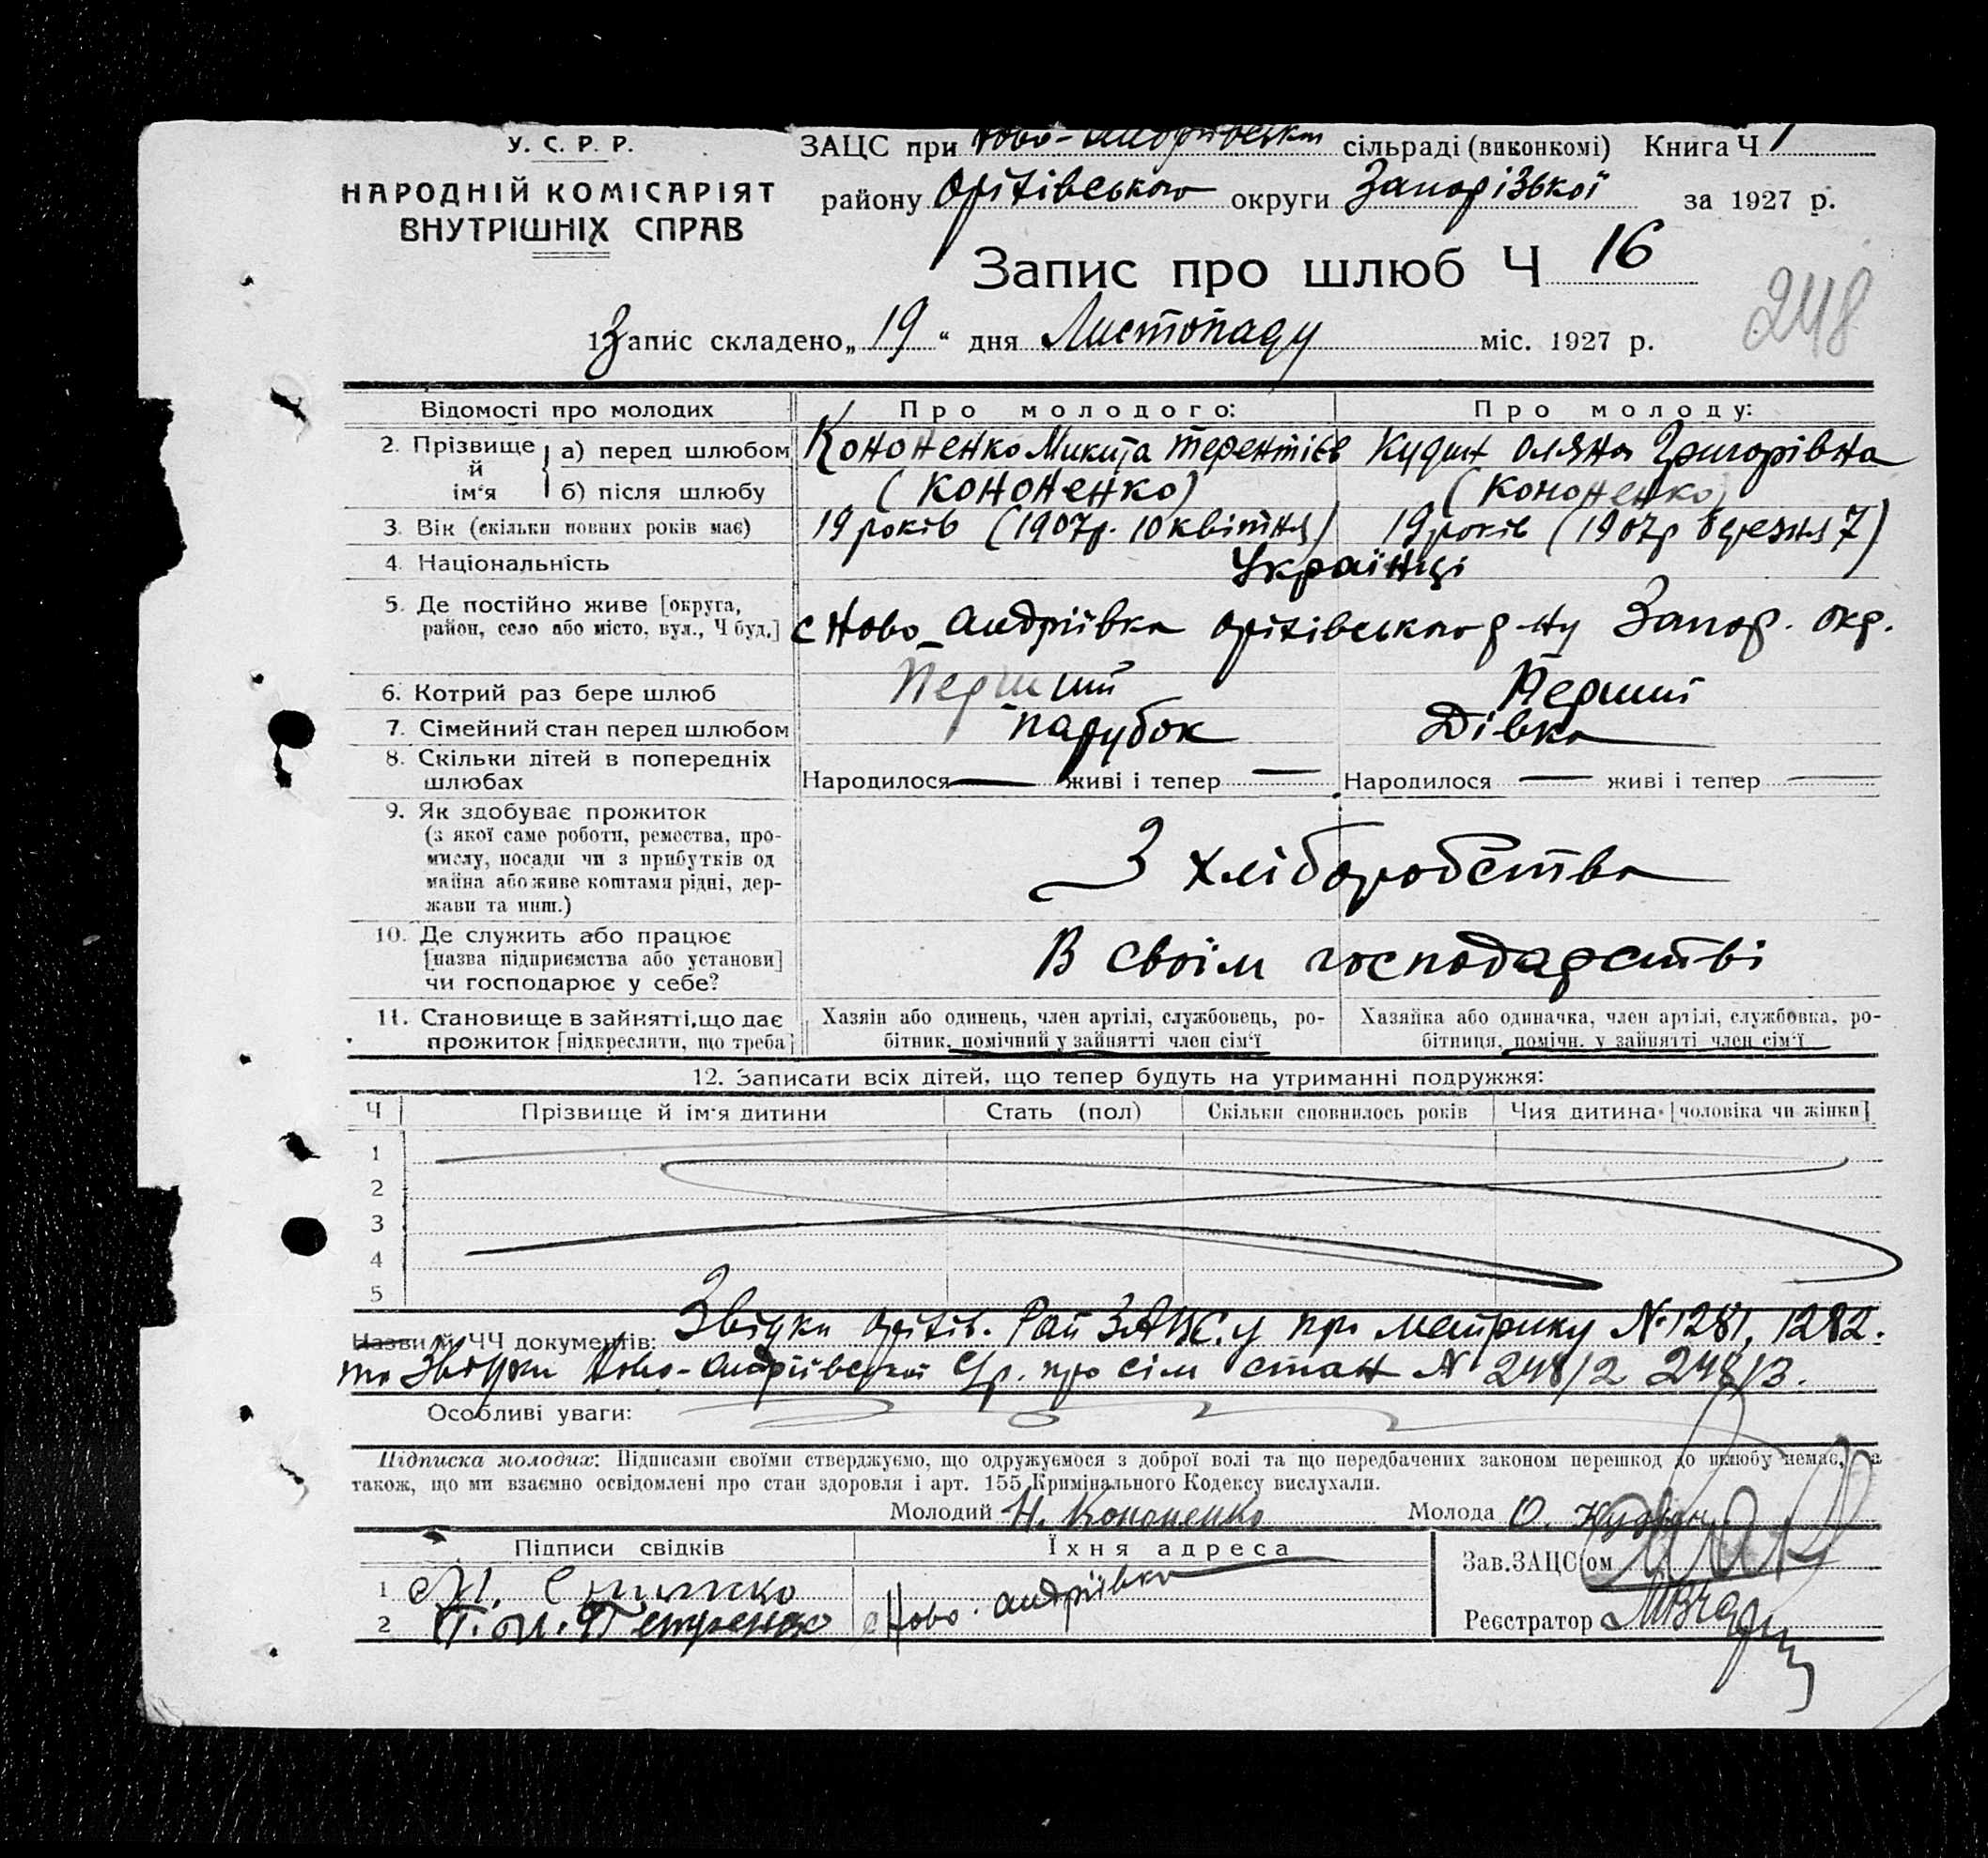 У. С. Р. Р.
НАРОДНІЙ КОМІСАРІЯТ
ВНУТРІШНІХ СПРАВ
ЗАЦС при Ново-Андріївськ сільраді (виконкомі) Книга Ч 1
району Оріхівського округи Запорізької за 1927 р.
Запис про шлюб Ч 16
248
1 Запис складено „19“ дня Листопаду міс. 1927 р.
Відомості про молодих Про молодого: Про молоду:
2. Прізвище й ім'я а) перед шлюбом Кононенко Микита Терентієв Кудин Оляна Григорівна
б) після шлюбу (Кононенко) (Кононенко)
3. Вік (скільки повних років має) 19 років (1907р. 10 квітня) 19 років (1907р березня 7)
4. Національність Українці
5. Де постійно живе [округа,
район, село або місто, вул., Ч буд.] с Ново-Андріївка Оріхівського р-ну Запор. окр.
6. Котрий раз бере шлюб Перший Перший
7. Сімейний стан перед шлюбом парубок Дівка
8. Скільки дітей в попередніх
шлюбах Народилося — живі і тепер — Народилося — живі і тепер —
9. Як здобуває прожиток
(з якої саме роботи, ремества, про-
мислу, посади чи з прибутків од
майна або живе коштами рідні, дер-
жави та инш.) З хліборобства
10. Де служить або працює
[назва підприємства або установи]
чи господарює у себе? В своїм господарстві
11. Становище в зайнятті, що дає
прожиток [підкреслити, що треба]
Хазяїн або одинець, член артілі, службовець, ро-
бітник, помічний у зайнятті член сім'ї
Хазяйка або одиначка, член артілі, службовка, ро-
бітниця, помічн. у зайнятті член сім'ї
12. Записати всіх дітей, що тепер будуть на утриманні подружжя:
Ч Прізвище й ім'я дитини Стать (пол) Скільки сповнилось років Чия дитина [чоловіка чи жінки]
1
2
3
4
5
Назви й ЧЧ документів: Звідки Оріхів. Рай ЗАЦС.у про метрику № 1281, 1282.
та Звідки Ново-Андріївської С/р. про сім стан № 248/2 248/3.
Особливі уваги:
Підписка молодих: Підписами своїми стверджуємо, що одружуємося з доброї волі та що передбачених законом перешкод до шлюбу немає, а
також, що ми взаємно освідомлені про стан здоровля і арт. 155 Кримінального Кодексу вислухали.
Молодий Н. Кононенко Молода О. Кудин
Підписи свідків Їхня адреса
Зав. ЗАЦС'ом
1
2 Петренко с Ново-Андріївка
Реєстратор